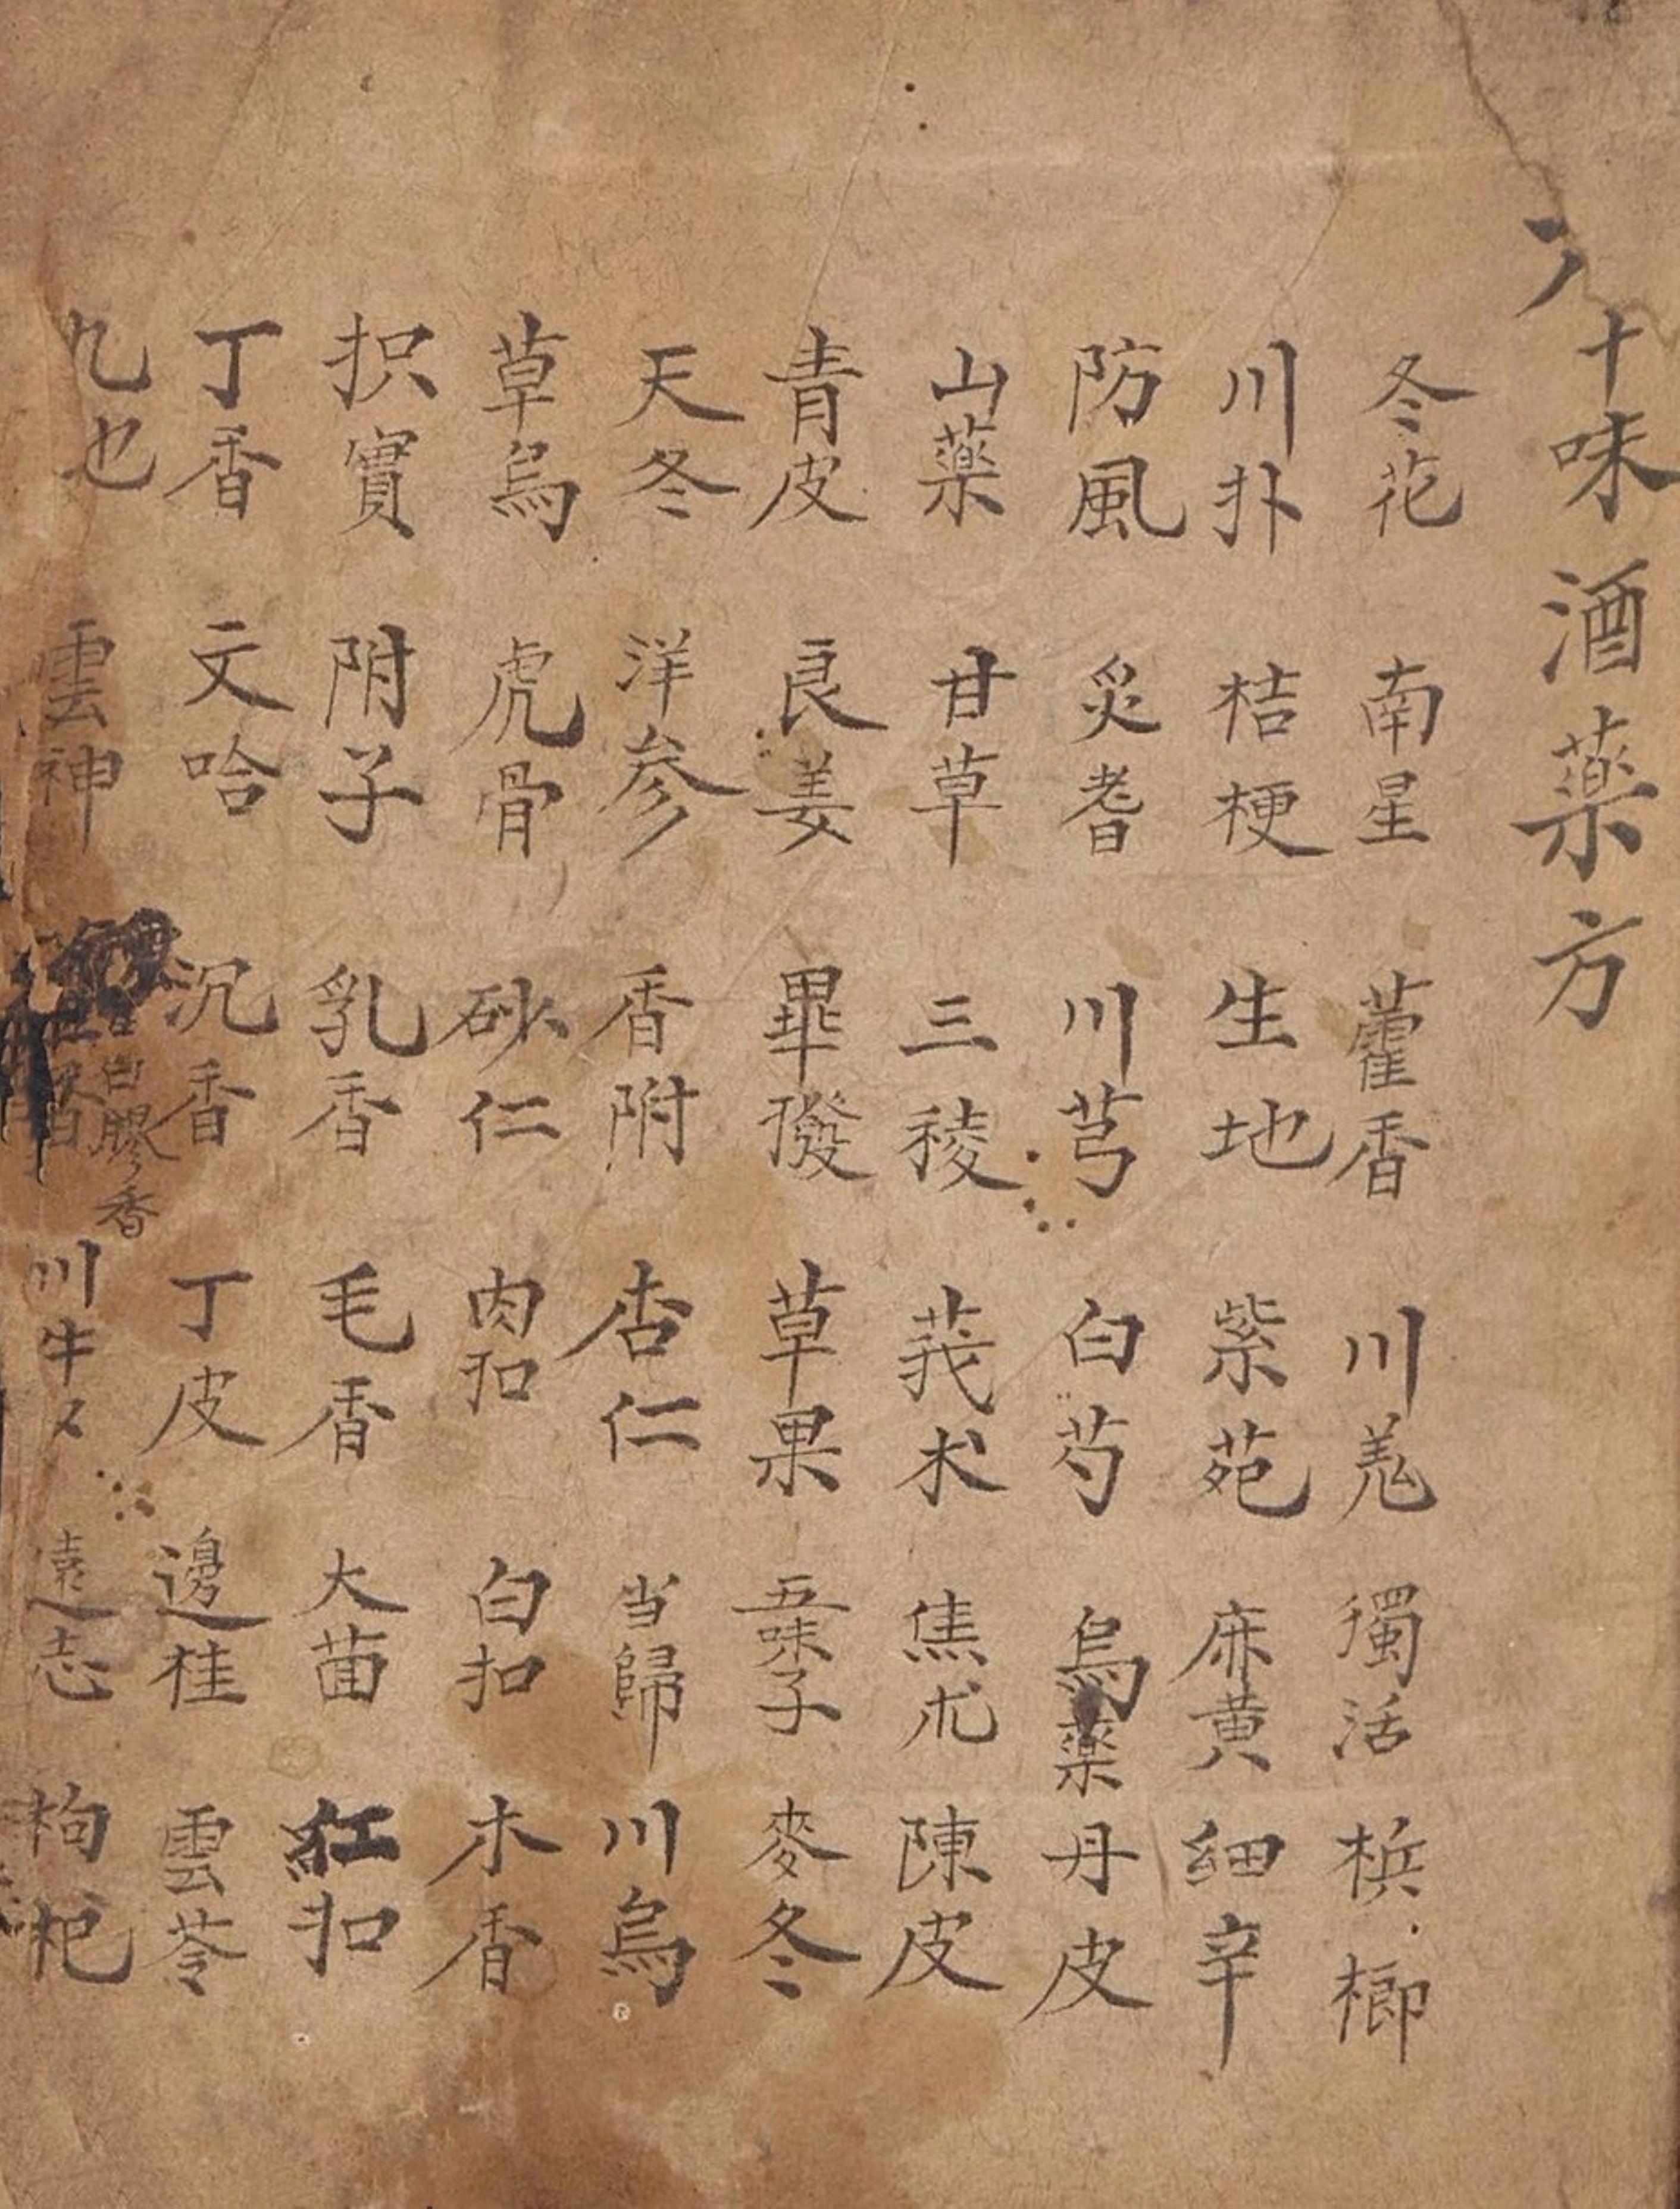 十味酒薬方
冬花 南星 藿香 川羗 獨活 梹榔
川扑 桔梗 生地 紫苑 麻黄 細辛
防風 炙耆 川芎 白芍 烏薬 丹皮
山薬 甘草 三稜 莪朮 焦朮 陳皮
青皮 良姜 畢撥 草果 五味子 麥冬
天冬 洋参 香附 杏仁 当歸 川烏
草烏 虎骨 砂仁 肉扣 白扣 木香
枳實 附子 乳香 毛香 大茴 紅扣
丁香 文哈 沉香 丁皮 邊桂 雲苓
白膠香
乜也 雲神 川牛又 遠志 枸杞